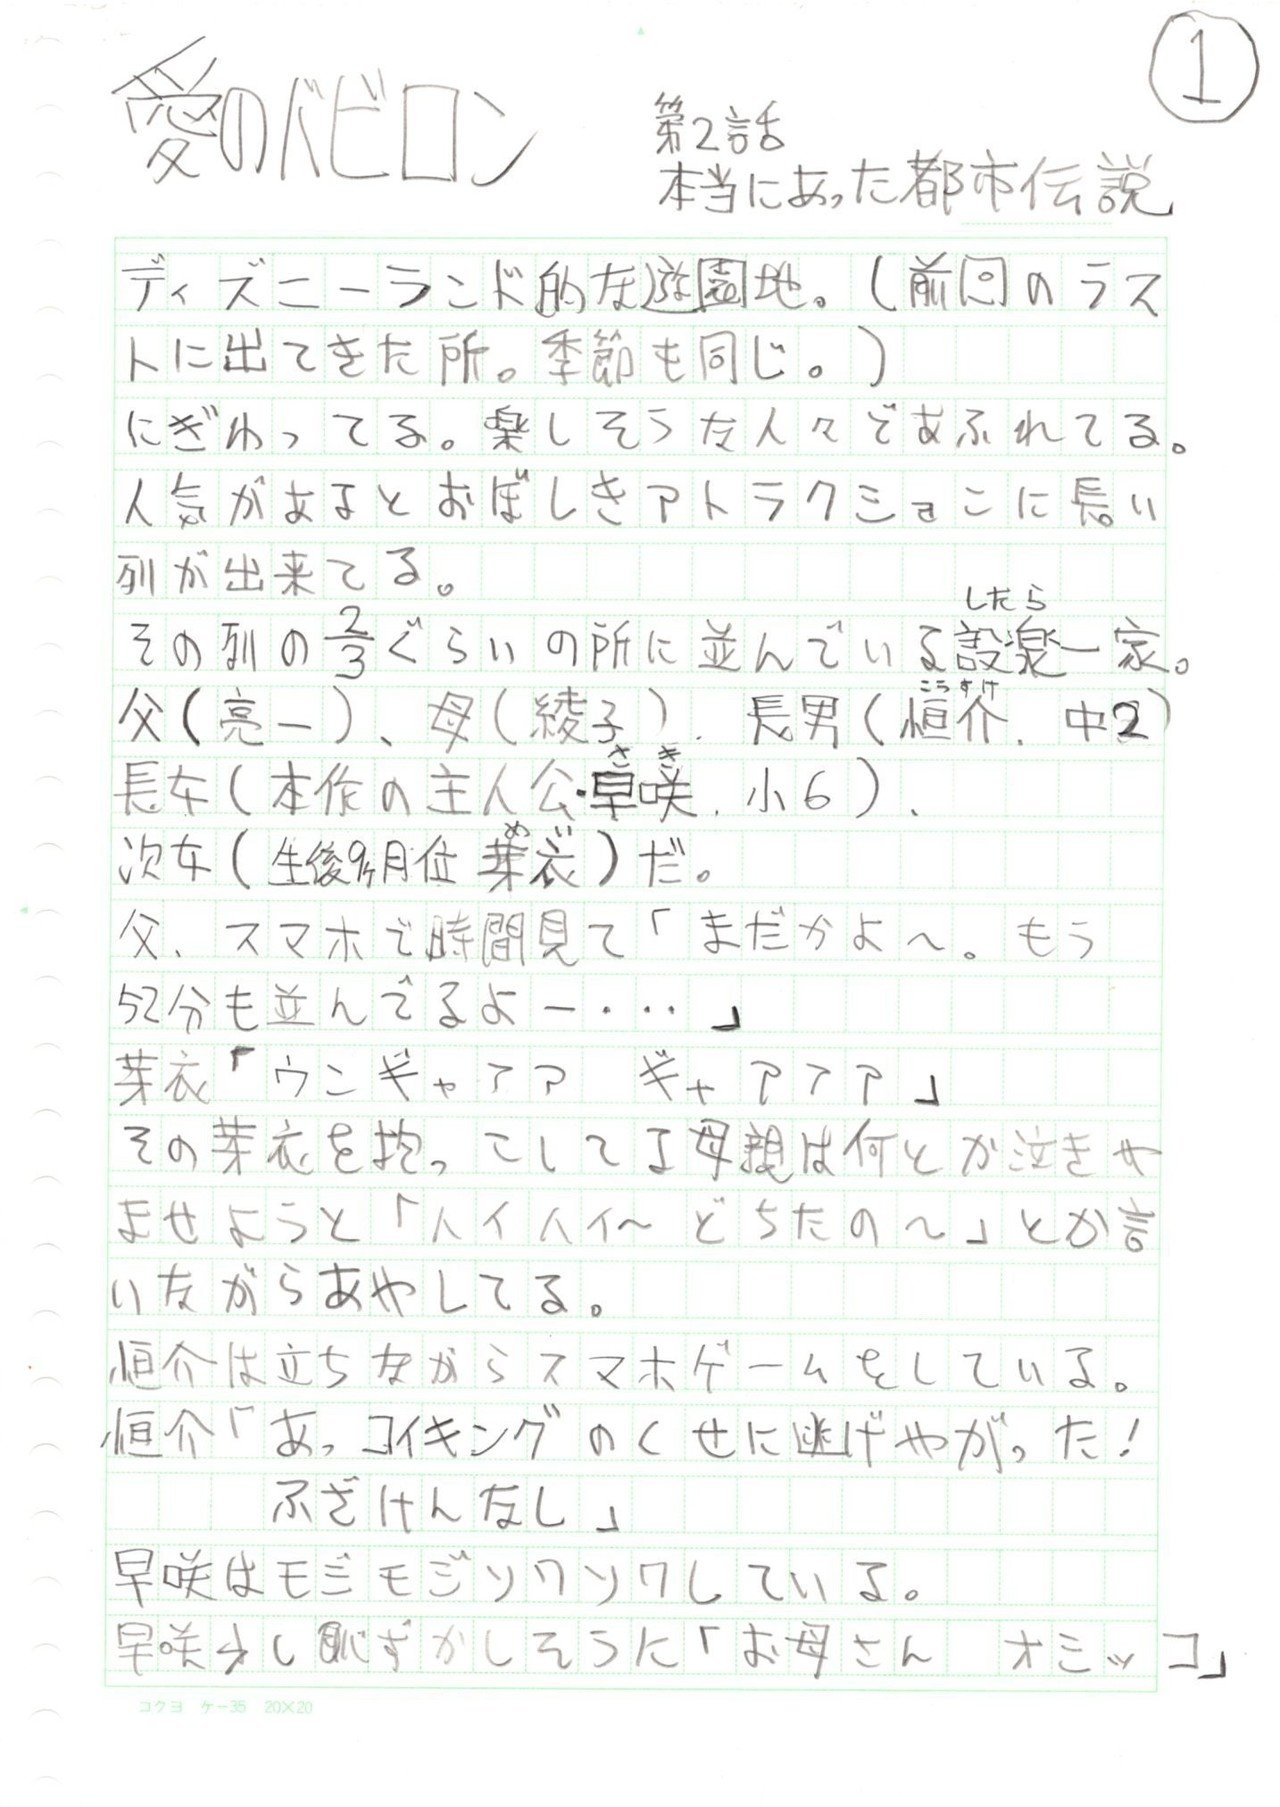 ①
愛のバビロン
第2話
本当にあった都市伝説
ディズニーランド的な遊園地。(前回のラス
トに出てきた所。季節も同じ。)
にぎわってる。楽しそうな人々であふれてる。
人気があるとおぼしきアトラクションに長い
列が出来てる。
したら
その列の2/3ぐらいの所に並んでいる設楽一家。
こうすけ
父(亮一)、母(綾子)、長男(恒介、中2)
さき
長女(本作の主人公・早咲、小6)、
めい
次女(生後9ヶ月位 芽衣)だ。
父、スマホで時間見て「まだかよ〜。もう
52分も並んでるよー・・・」
芽衣「ウンギャアア ギャアアア」
その芽衣を抱っこしてる母親は何とか泣きや
ませようと「ハイハイ〜どちたの〜」とか言
いながらあやしてる。
恒介は立ちながらスマホゲームをしている。
恒介「あっコイキングのくせに逃げやがった!
ふざけんなし」
早咲はモジモジソワソワしている。
早咲少し恥ずかしそうに「お母さん オシッコ」
コクヨ ケー35 20×20